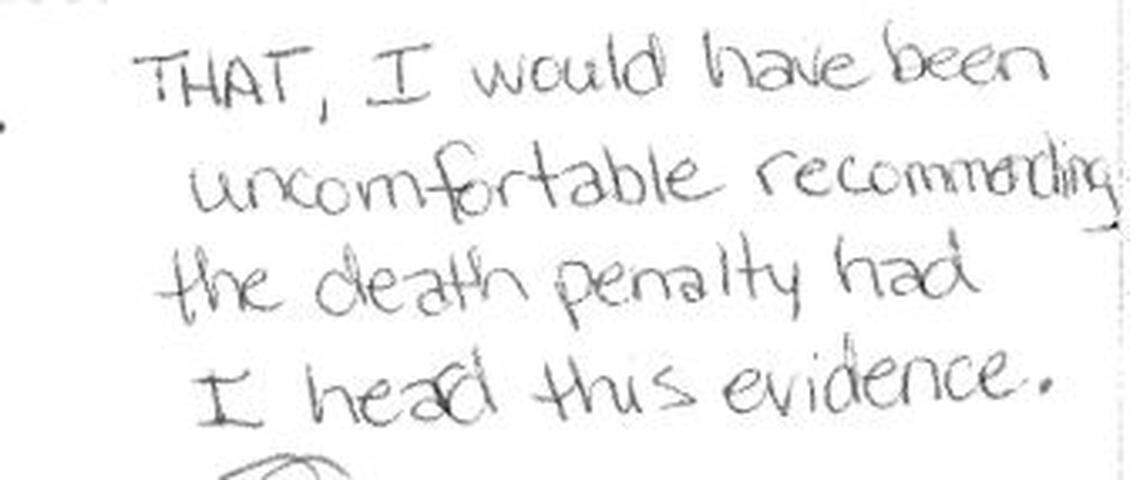 THAT, I would have been
uncomfortable recommending
the death penalty had
I head this evidence.